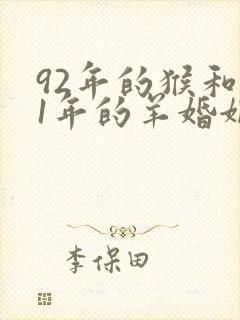 92年的猴和
1年的羊婚
李保田